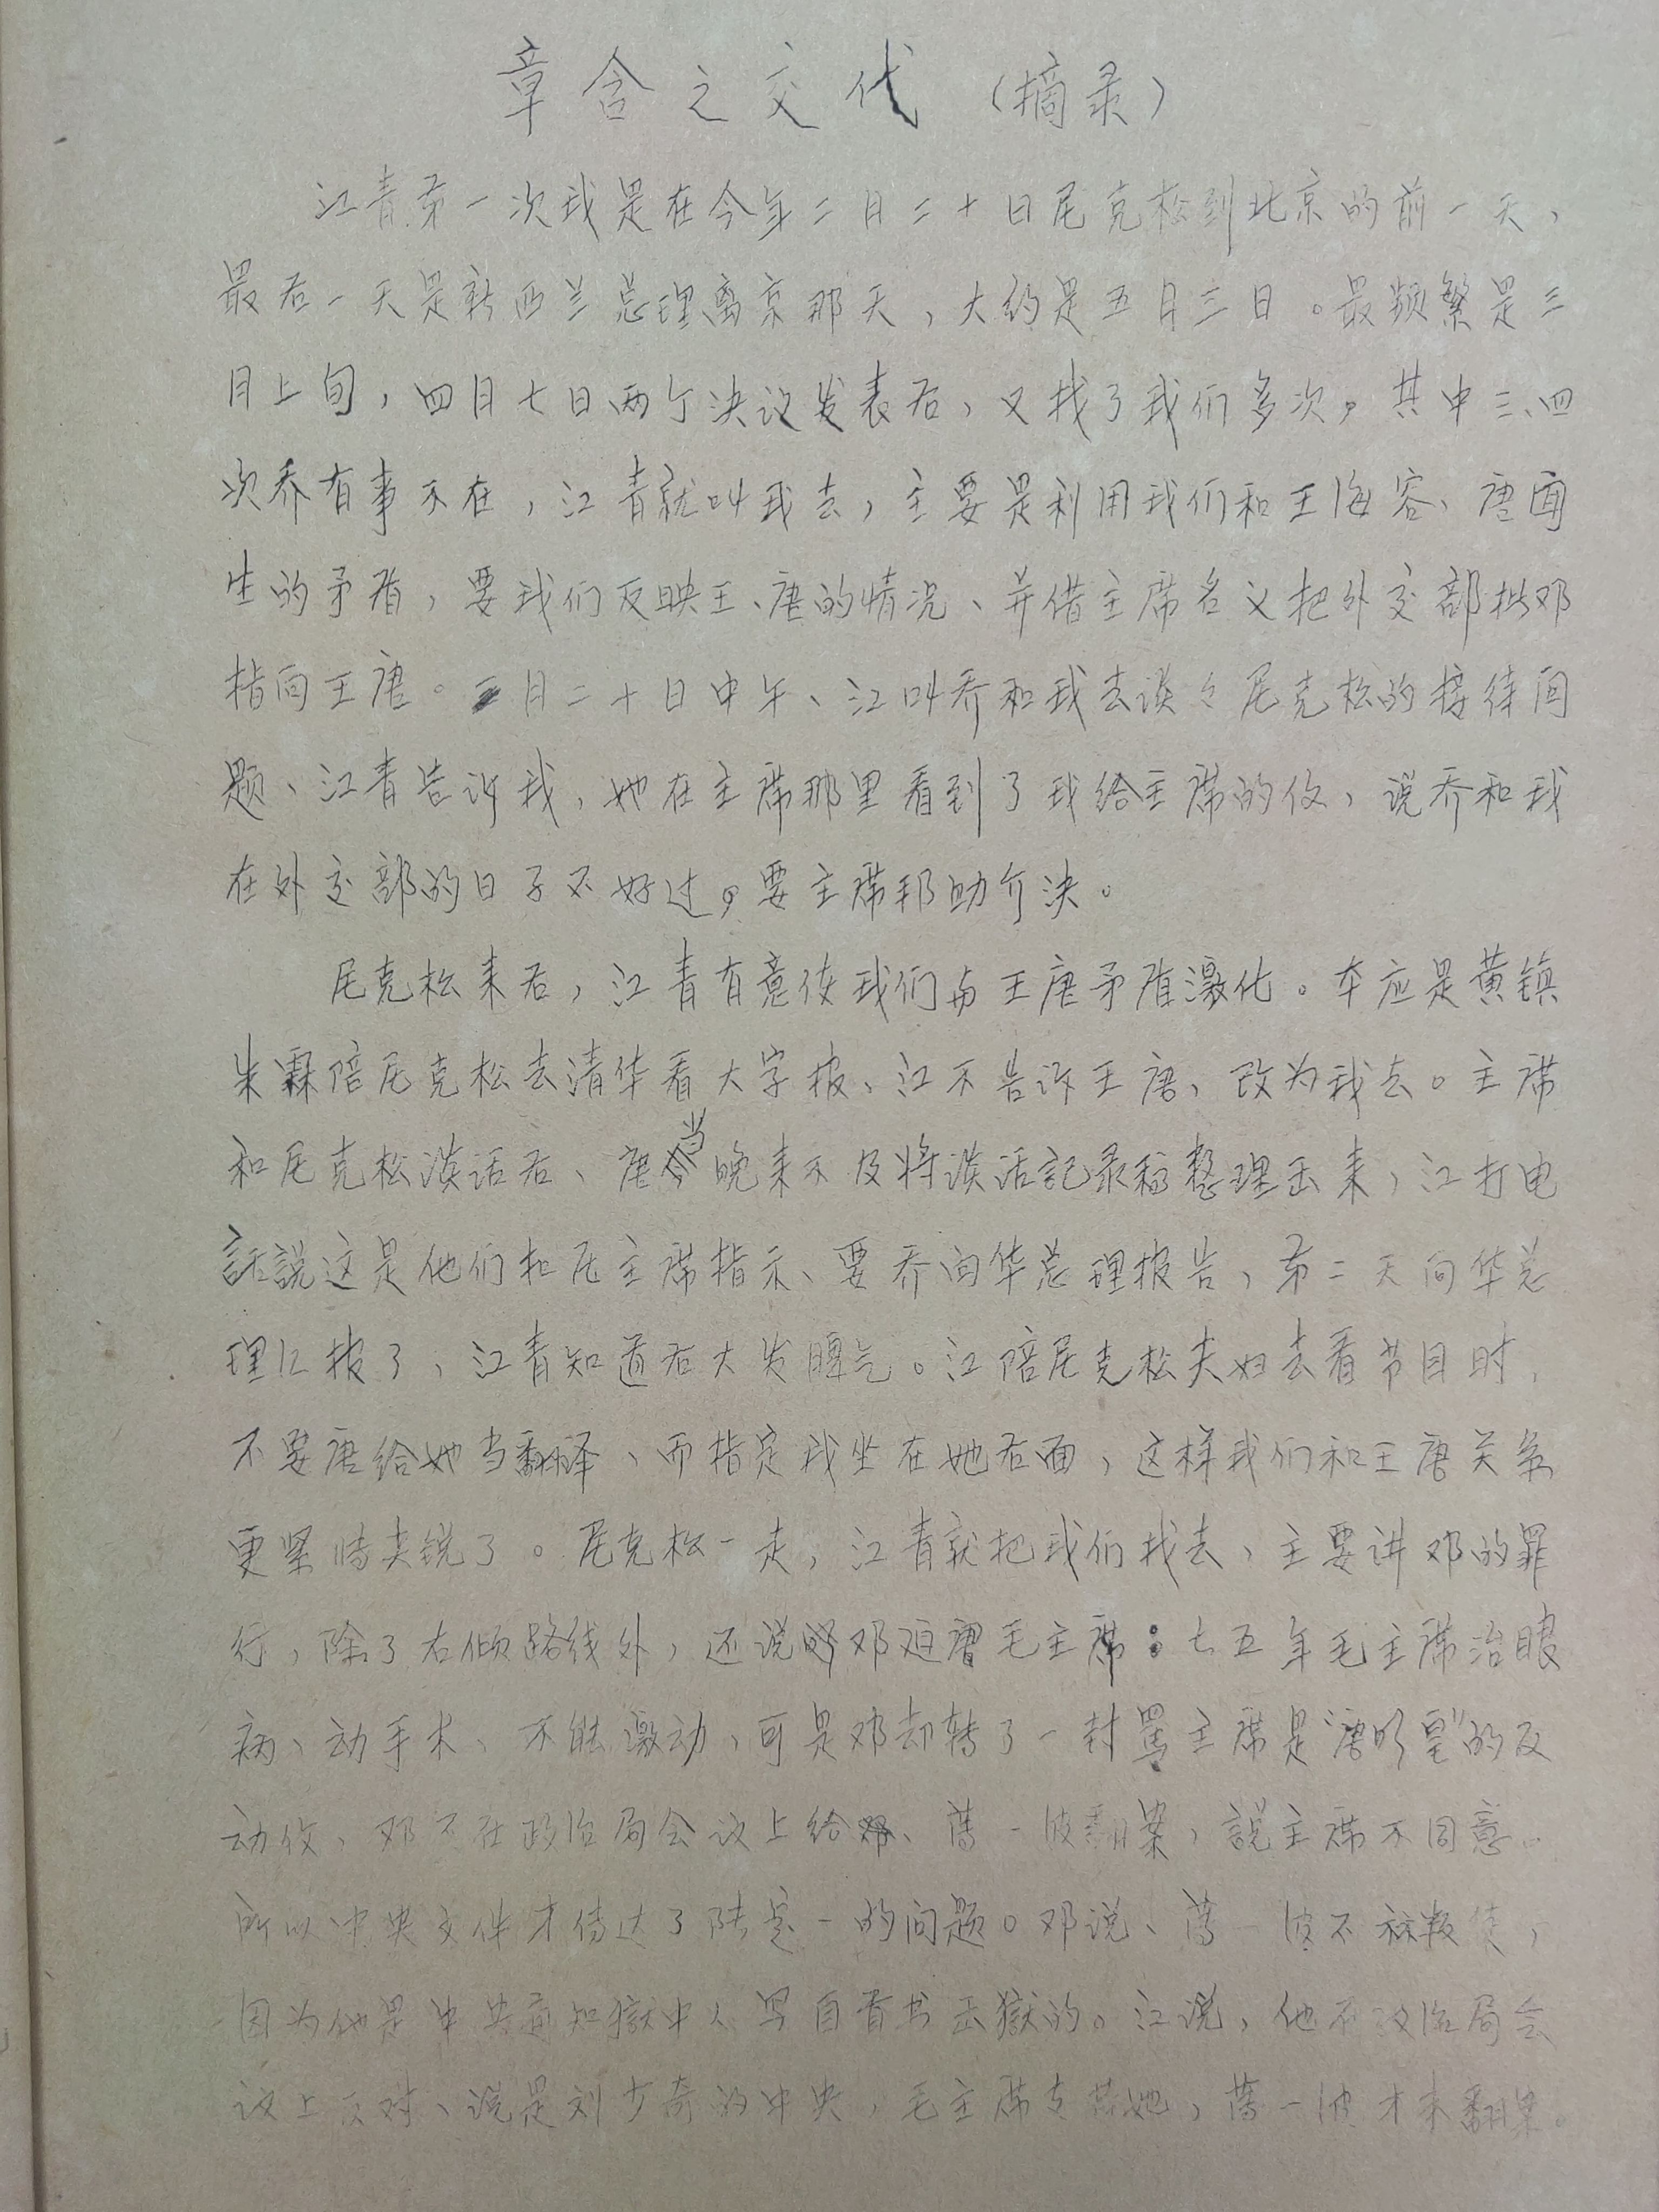 章含之交代（摘录）
江青第一次我是在今年二月二十日尼克松到北京的前一天，
最后一天是新西兰总理离京那天，大约是五月三日。最频繁是三
月上旬，四月七日两个决议发表后，又找了我们多次，其中三、四
次乔有事不在，江青就叫我去，主要是利用我们和王海容、唐闻
生的矛盾，要我们反映王、唐的情况、并借主席名义把外交部批邓
指向王唐。二月二十日中午、江叫乔和我去谈々尼克松的接待问
题、江青告诉我，她在主席那里看到了我给主席的信，说乔和我
在外交部的日子不好过，要主席帮助介决。
尼克松来后，江青有意使我们与王唐矛盾激化。本应是黄镇
朱霖陪尼克松去清华看大字报、江不告诉王唐，改为我去。主席
和尼克松谈话后、唐当晚来不及将谈话記录稿整理出来，江打电
話説这是他们扣压主席指示、要乔向华总理报告，第二天向华总
理汇报了，江青知道后大发脾气。江陪尼克松夫妇去看节目时，
不要唐给她当翻译、而指定我坐在她右面，这样我们和王唐关系
更紧張尖锐了。尼克松一走，江青就把我们找去，主要讲邓的罪
行，除了右倾路线外，还说邓迫害毛主席：七五年毛主席治眼
病、动手术、不能激动、可是邓却转了一封骂主席是“唐明皇”的反
动信、邓又在政治局会议上给、薄一波翻案，説主席不同意。
所以中央文件才传达了陆定一的问题。邓说、薄一波不祘叛徒，
因为他是中共通知獄中人写自首书出獄的。江说，他在政治局会
议上反对、说是刘少奇的中央，毛主席支持她，薄一波才未翻案。